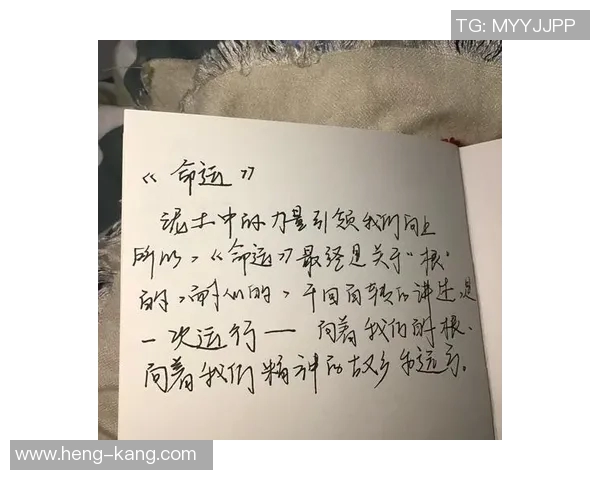 TG: MYYJJPP
《命运》
泥土中的力量引领我们向上
所以，《命运》最终是关于“根”
的，耐人的，千回百转的讲述，是
一次远行——向着我们的根、
向着我们精神的故乡的远行。
www.heng-kang.com